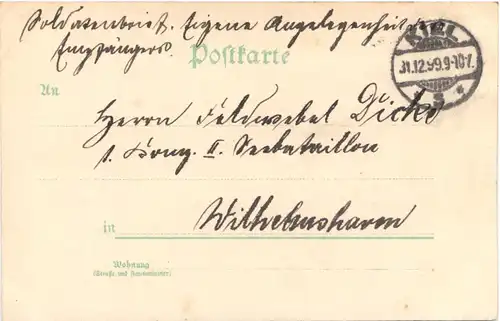 Soldatenbrief. Eigene Angelegenheit des
Empfängers.
Postkarte
KIEL
31.12.99.9-10V.
5
An
Herrn Feldwebel Dicke
1. Komp. II. Seebataillon
in Wilhelmshaven
Wohnung
(Straße und Hausnummer)